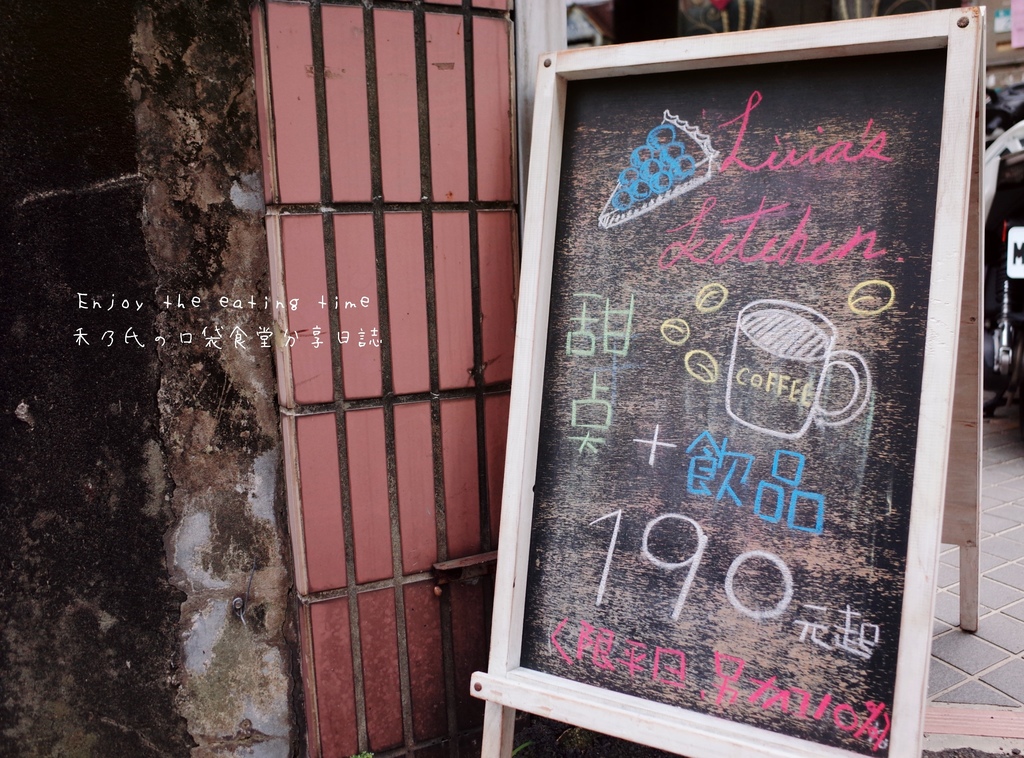 Enjoy the eating time
禾乃氏の口袋食堂分享日誌
Livia's
kitchen.
甜点
COFFEE
+ 飲品
190 元起
限平日 另加10%
M